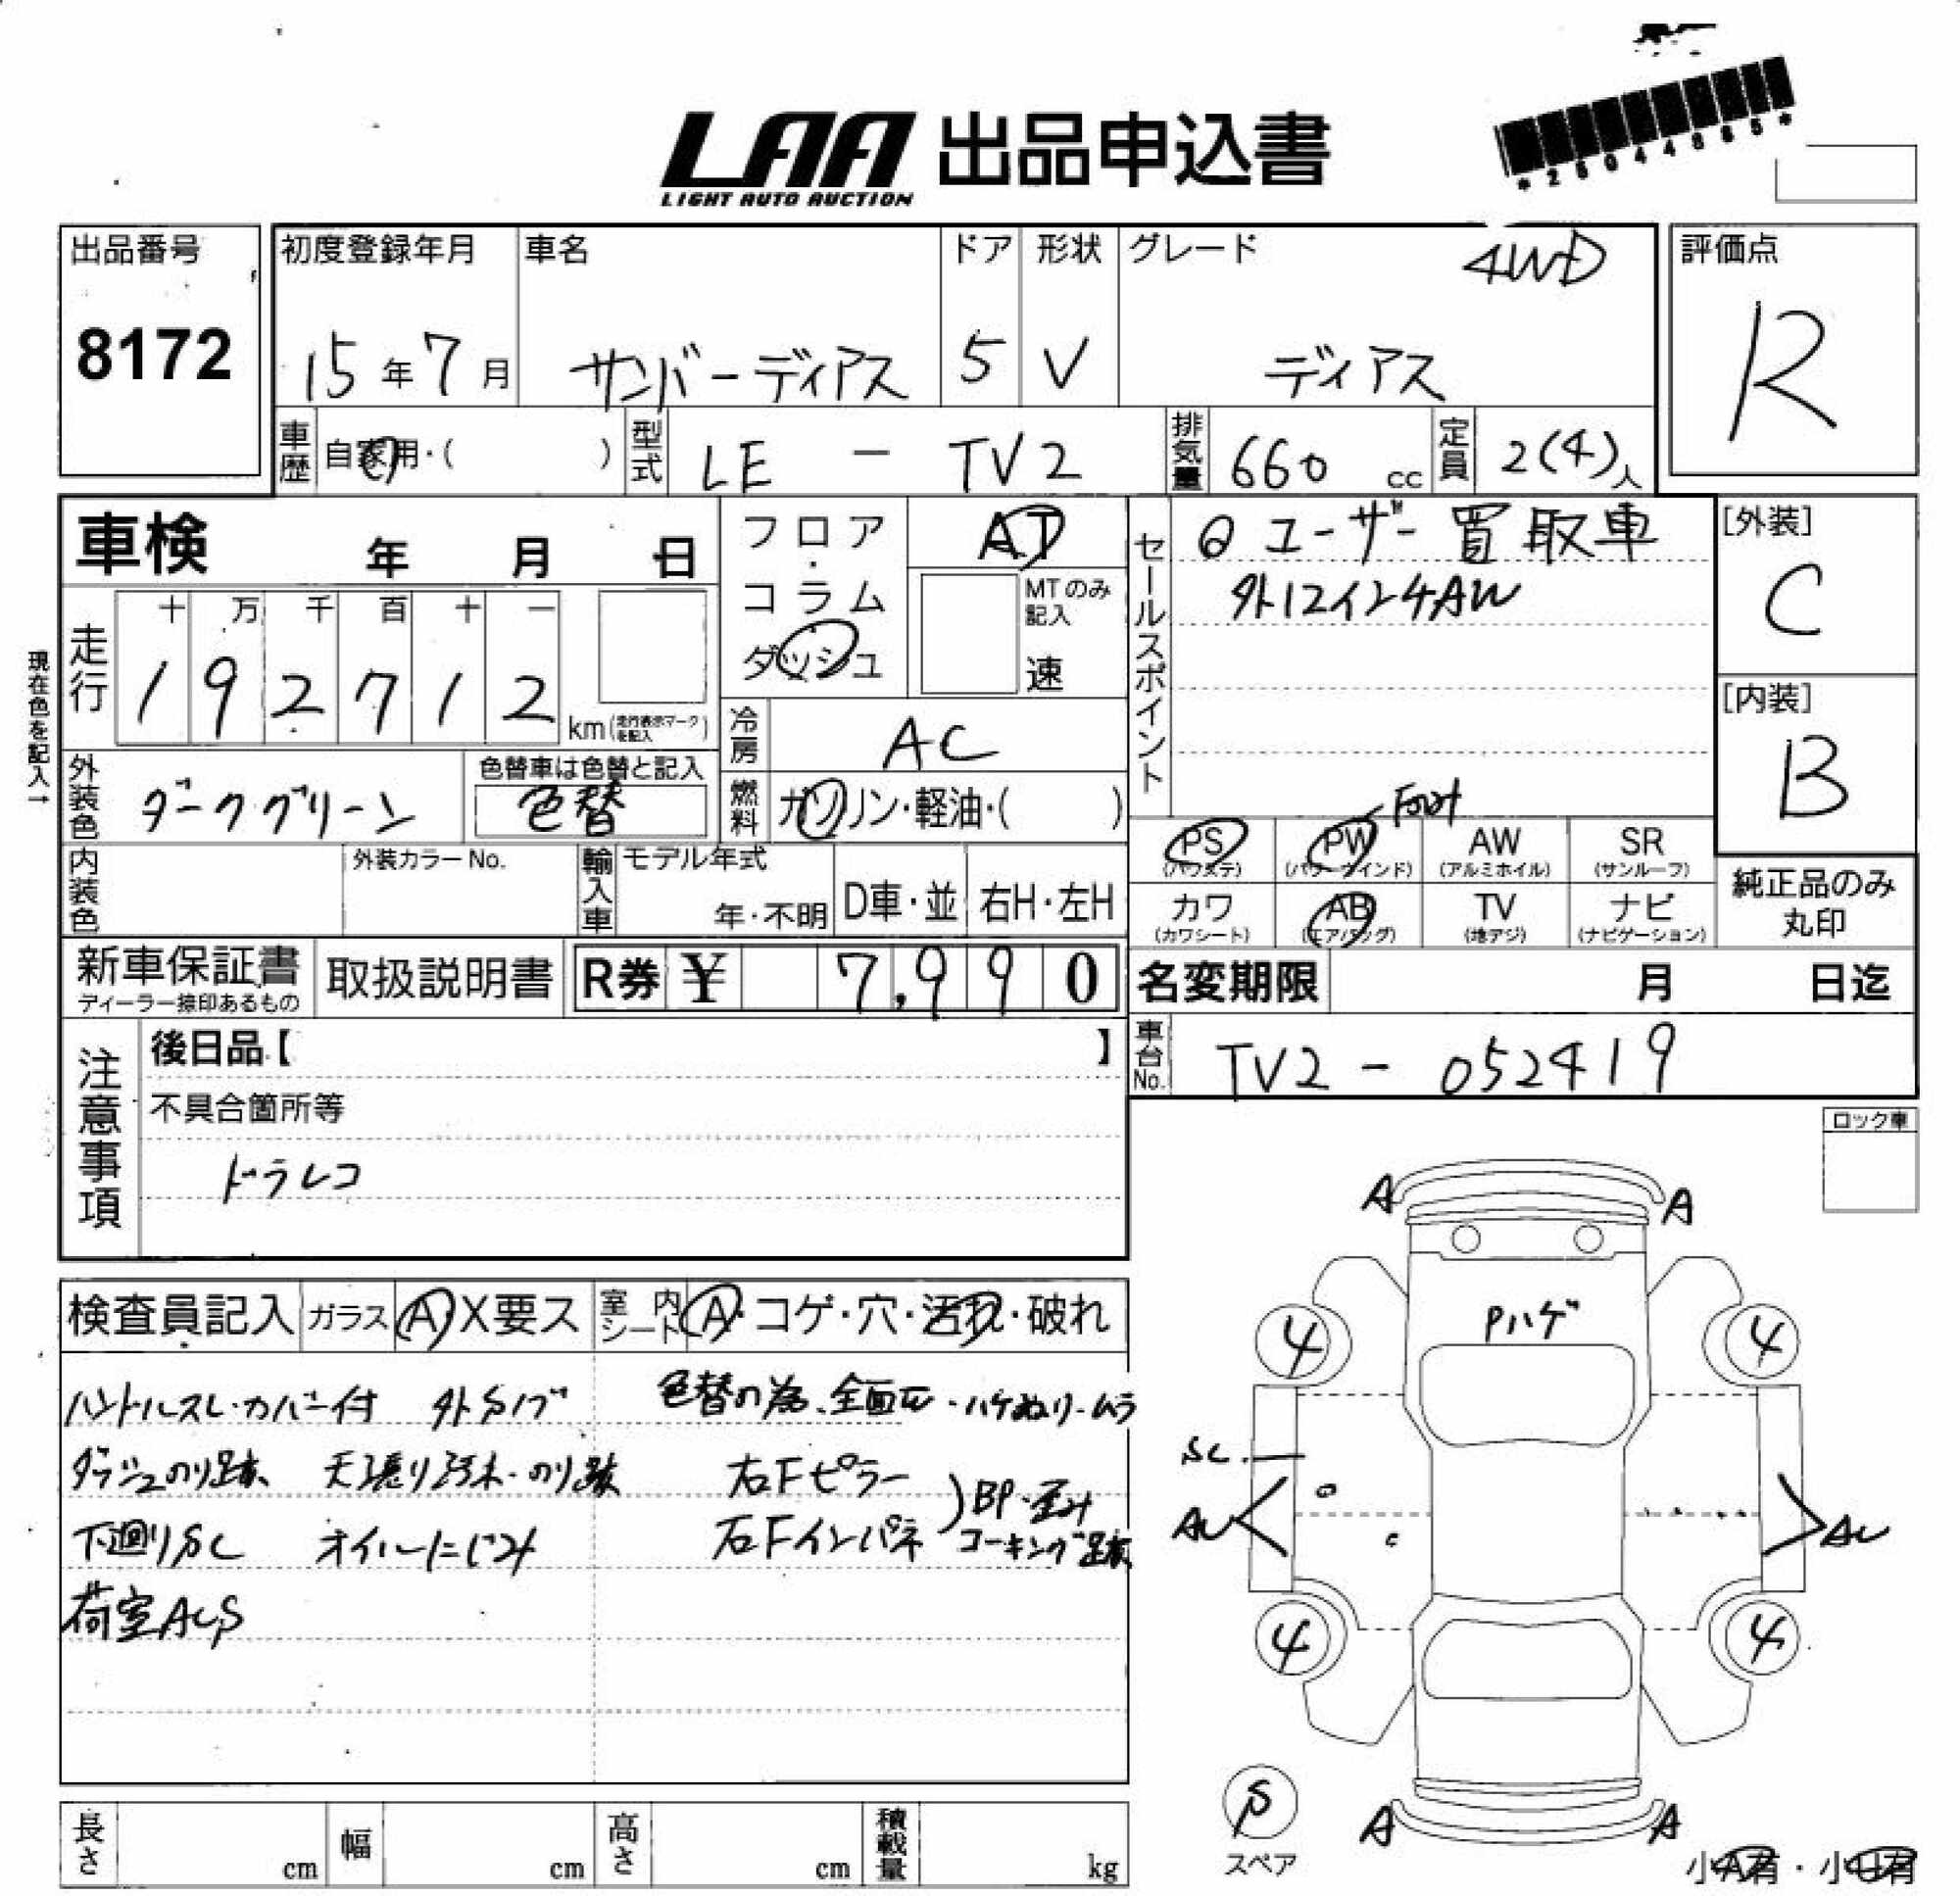 LAA 出品申込書
LIGHT AUTO AUCTION
*25044865*
出品番号
8172
初度登録年月
15年7月
車名
サンバーディアス
ドア
5
形状
V
グレード
4WD
ディアス
評価点
R
車歴
自家用・( )
型式
LE - TV2
排気量
660 cc
定員
2(4)人
車検 年 月 日
フロア・コラム
ダッシュ
AT
MTのみ記入
速
セールスポイント
ユーザー買取車
外12インチAW
[外装]
C
[内装]
B
現在色を記入→
走行
十 万 千 百 十 一
1 9 2 7 1 2
km(走行表示マークを記入)
冷房
AC
外装色
ダークグリーン
色替車は色替と記入
色替
燃料
ガソリン・軽油・( )
Front
PS
(パワステ)
PW
(パワーウインド)
AW
(アルミホイル)
SR
(サンルーフ)
カワ
(カワシート)
AB
(エアバッグ)
TV
(地デジ)
ナビ
(ナビゲーション)
純正品のみ
丸印
内装色
外装カラーNo.
輸入車
モデル年式
年・不明
D車・並
右H・左H
新車保証書
ディーラー捺印あるもの
取扱説明書
R券 ¥ 7,990
名変期限 月 日迄
車台No.
TV2 - 052419
注意事項
後日品【 】
不具合箇所等
ドラレコ
ロック車
検査員記入
ガラス
A X要ス
室内シート
A・コゲ・穴・汚れ・破れ
ハンドルスレ・カバー付 外
色替の為、全面 ・ハケぬり-ムラ
ダッシュのり跡 天張り汚れ・のり跡
右Fピラー
BP・歪み
下廻りSC オイルにじみ
右Fインパネ
コーキング跡
荷室ACS
A
A
Pハゲ
4
4
SC
AU
AU
4
4
S
スペア
A
A
小A有・小U有
長さ cm
幅 cm
高さ cm
積載量 kg